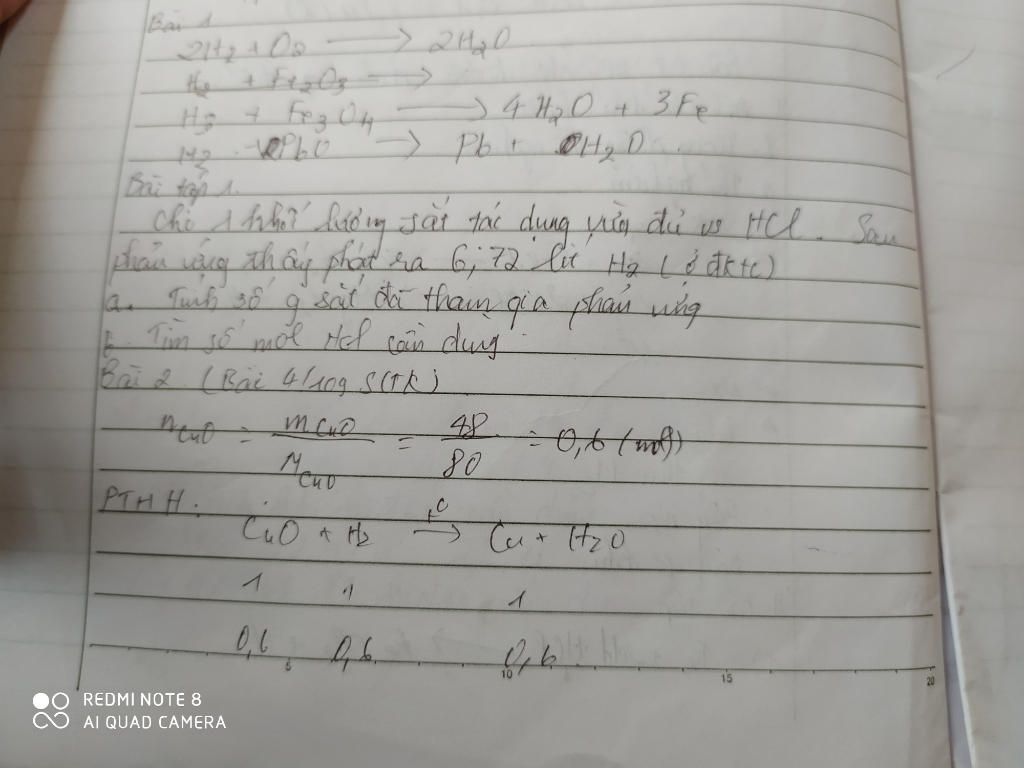 Bài 1
2H2 + O2 → 2H2O
H2 + Fe2O3 →
H2 + Fe3O4 → 4H2O + 3Fe
H2 + PbO → Pb + H2O
Bài tập 1.
Cho 1 khối lượng sắt tác dụng vừa đủ vs HCl. Sau
phản ứng thấy phát ra 6,72 lít H2 (ở đktc)
a. Tính số g sắt đã tham gia phản ứng
b. Tìm số mol HCl cần dùng
Bài 2 (Bài 4/109 SGTK)
nCuO = mCuO / MCuO = 48 / 80 = 0,6 (mol)
PTHH: CuO + H2 →(t°) Cu + H2O
1 1 1
0,6 0,6 0,6
5 10 15 20
REDMI NOTE 8
AI QUAD CAMERA